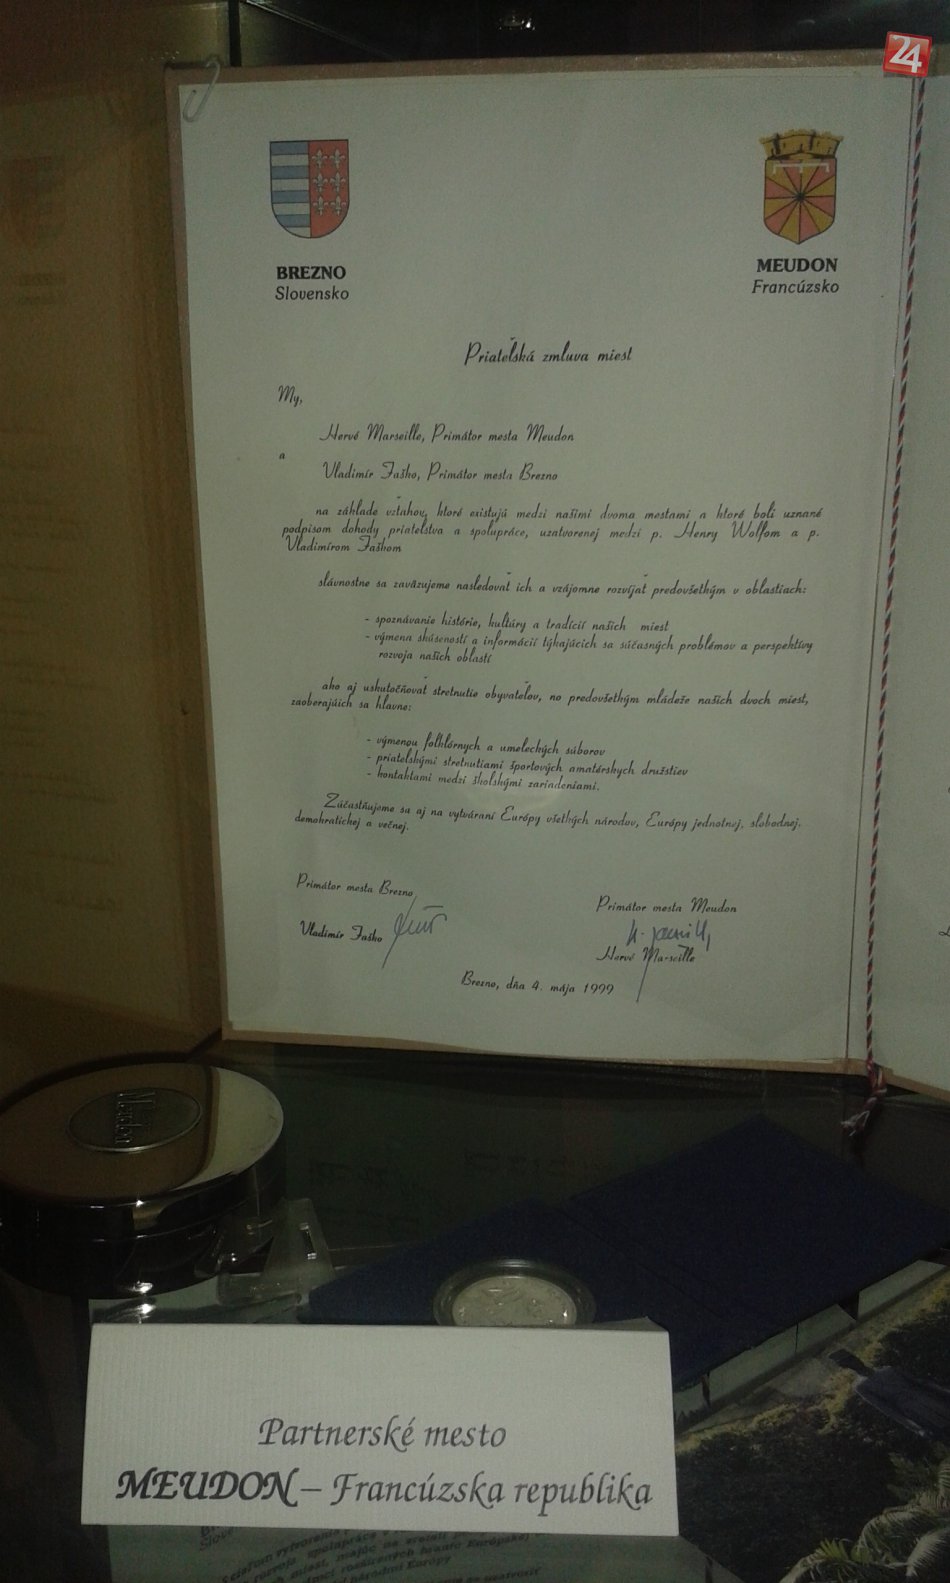 24
BREZNO
Slovensko
MEUDON
Francúzsko
Priateľská zmluva miest
My,
Hervé Marseille, Primátor mesta Meudon
a
Vladimír Faško, Primátor mesta Brezno
na základe vzťahov, ktoré existujú medzi našimi dvoma mestami a ktoré boli uznané
podpisom dohody priatelstva a spolupráce, uzatvorenej medzi p. Henry Wolfom a p.
Vladimírom Faškom
slávnostne sa zaväzujeme nasledovať ich a vzájomne rozvíjať predovšetkým v oblastiach:
- spoznávanie histórie, kultúry a tradícií našich miest
- výmena skúseností a informácií týkajúcich sa súčasných problémov a perspektívy
rozvoja našich oblastí
ako aj uskutočňovať stretnutie obyvateľov, no predovšetkým mládeže našich dvoch miest,
zaoberajúich sa hlavne:
- výmenou folklórnych a umeleckých súborov
- priatelskými stretnutiami športových amatérskych družstiev
- kontaktami medzi školskými zariadeniami.
Zúčastňujeme sa aj na vytváraní Európy všetkých národov, Európy jednotnej, slobodnej,
demokratickej a večnej.
Primátor mesta Brezno
Vladimír Faško
Primátor mesta Meudon
Hervé Marseille
Brezno, dňa 4. mája 1999
Meudon
Partnerské mesto
MEUDON – Francúzska republika